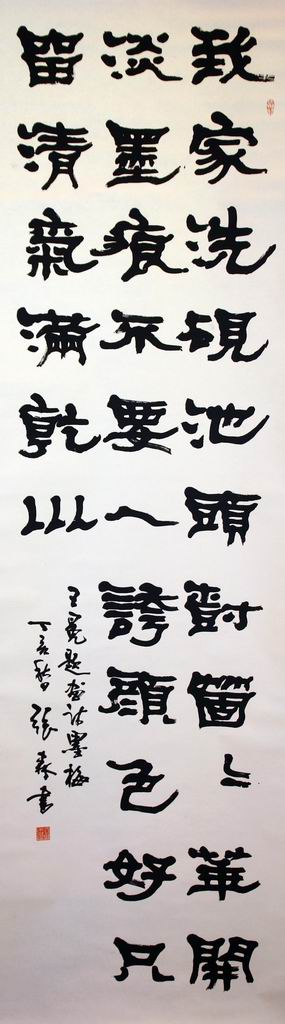 我家洗硯池頭樹箇〻華開
淡墨痕不要人誇顏色好只
留清氣滿乾巛
王冕題畫詩墨梅
丁亥秋日張森書